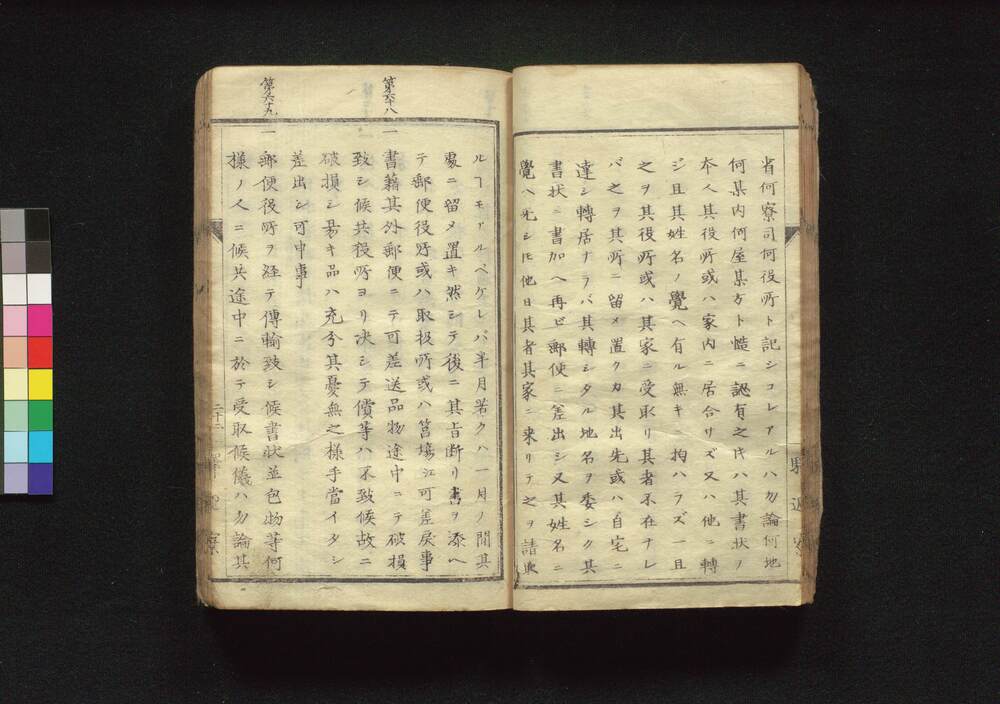 省何寮司何役所ト記シコレアルハ勿論何地
何某内何屋某方ト慥ニ認有之ハ其書状ノ
本人其役所或ハ家内ニ居合サズ又ハ他ニ轉
ジ且其姓名ノ覺ヘ有ル無キニ拘ハラズ一旦
之ヲ其役所或ハ其家ニ受取リ其者不在ナレ
バ之ヲ其所ニ留メ置クカ其出先或ハ自宅ニ
達シ轉居ナラバ其轉シタル地名ヲ委シク其
書状ニ書加ヘ再ビ郵便ニ差出シ又其姓名ニ
覺ヘ无シ𪜈他日其者其家ニ来リテ之ヲ請取
ルヿモアルベケレバ半月若クハ一月ノ間其
處ニ留メ置キ然シテ後ニ其旨断リ書ヲ添ヘ
テ郵便役所或ハ取扱所或ハ筥塲江可差戻事
第六十八
一書籍其外郵便ニテ可差送品物途中ニテ破損
致シ候共役所ヨリ决シテ償等ハ不致候故ニ
破損シ易キ品ハ充分其憂無之様手當イタシ
差出シ可申事
第六十九
一郵便役所ヲ經テ傳輸致シ候書状並包物等何
様ノ人ニ候共途中ニ於テ受取候儀ハ勿論其
二十二
驛逓寮